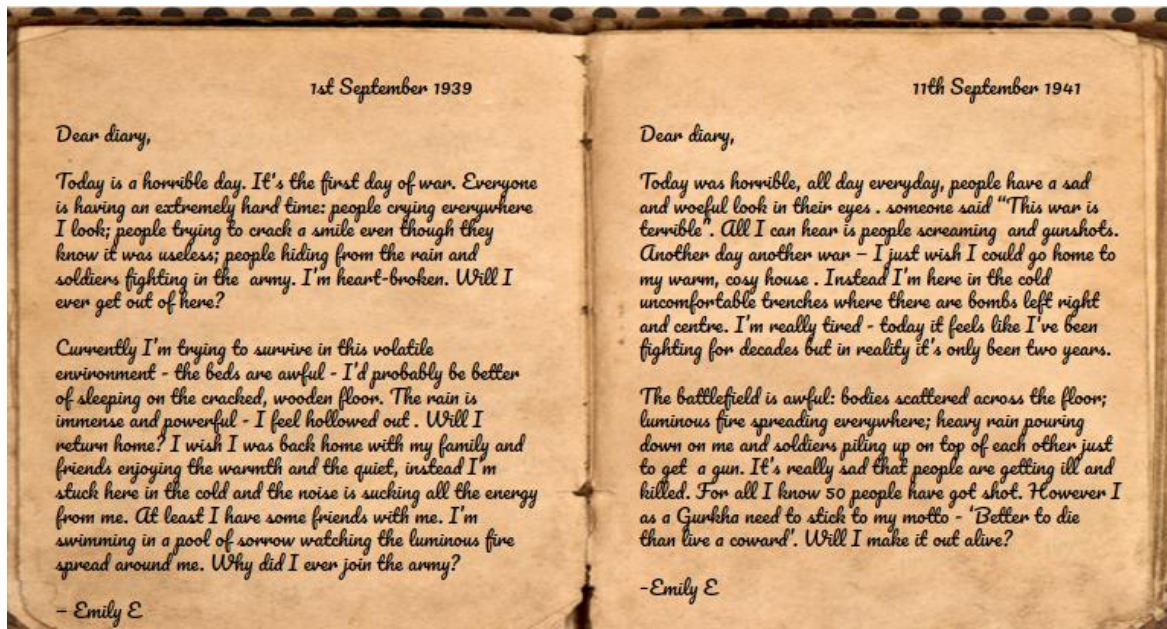 1st September 1939
Dear diary,
Today is a horrible day. It's the first day of war. Everyone
is having an extremely hard time: people crying everywhere
I look; people trying to crack a smile even though they
know it was useless; people hiding from the rain and
soldiers fighting in the army. I'm heart-broken. Will I
ever get out of here?
Currently I'm trying to survive in this volatile
environment - the beds are awful - I'd probably be better
of sleeping on the cracked, wooden floor. The rain is
immense and powerful - I feel hollowed out . Will I
return home? I wish I was back home with my family and
friends enjoying the warmth and the quiet, instead I'm
stuck here in the cold and the noise is sucking all the energy
from me. At least I have some friends with me. I'm
swimming in a pool of sorrow watching the luminous fire
spread around me. Why did I ever join the army?
– Emily E
11th September 1941
Dear diary,
Today was horrible, all day everyday, people have a sad
and woeful look in their eyes . someone said "This war is
terrible". All I can hear is people screaming and gunshots.
Another day another war – I just wish I could go home to
my warm, cosy house . Instead I'm here in the cold
uncomfortable trenches where there are bombs left right
and centre. I'm really tired - today it feels like I've been
fighting for decades but in reality it's only been two years.
The battlefield is awful: bodies scattered across the floor;
luminous fire spreading everywhere; heavy rain pouring
down on me and soldiers piling up on top of each other just
to get a gun. It's really sad that people are getting ill and
killed. For all I know 50 people have got shot. However I
as a Gurkha need to stick to my motto - 'Better to die
than live a coward'. Will I make it out alive?
-Emily E